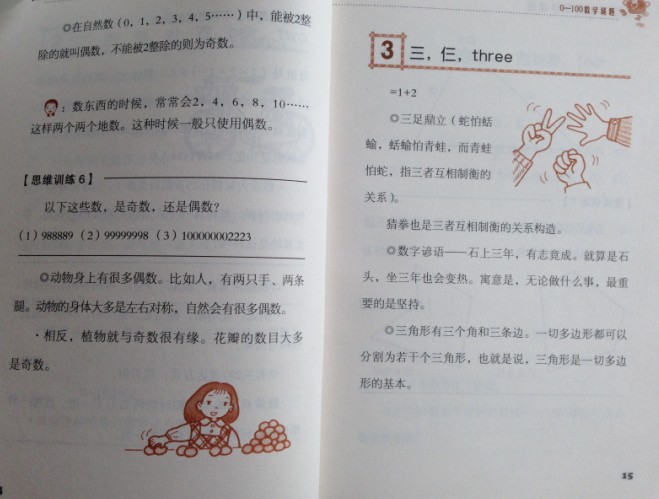 ◎在自然数（0，1，2，3，4，5……）中，能被2整
除的就叫偶数，不能被2整除的则为奇数。
：数东西的时候，常常会2，4，6，8，10……
这样两个两个地数。这种时候一般只使用偶数。
【思维训练6】
以下这些数，是奇数，还是偶数？
（1）988889（2）99999998（3）100000002223
◎动物身上有很多偶数。比如人，有两只手、两条
腿。动物的身体大多是左右对称，自然会有很多偶数。
·相反，植物就与奇数很有缘。花瓣的数目大多
是奇数。
0—100数学谜题
3 三，仨，three
=1+2
◎三足鼎立（蛇怕蛞
蝓，蛞蝓怕青蛙，而青蛙
怕蛇，指三者互相制衡的
关系）。
猜拳也是三者互相制衡的关系构造。
◎数字谚语——石上三年，有志竟成。就算是石
头，坐三年也会变热。寓意是，无论做什么事，最重
要的是坚持。
◎三角形有三个角和三条边。一切多边形都可以
分割为若干个三角形，也就是说，三角形是一切多边
形的基本。
15